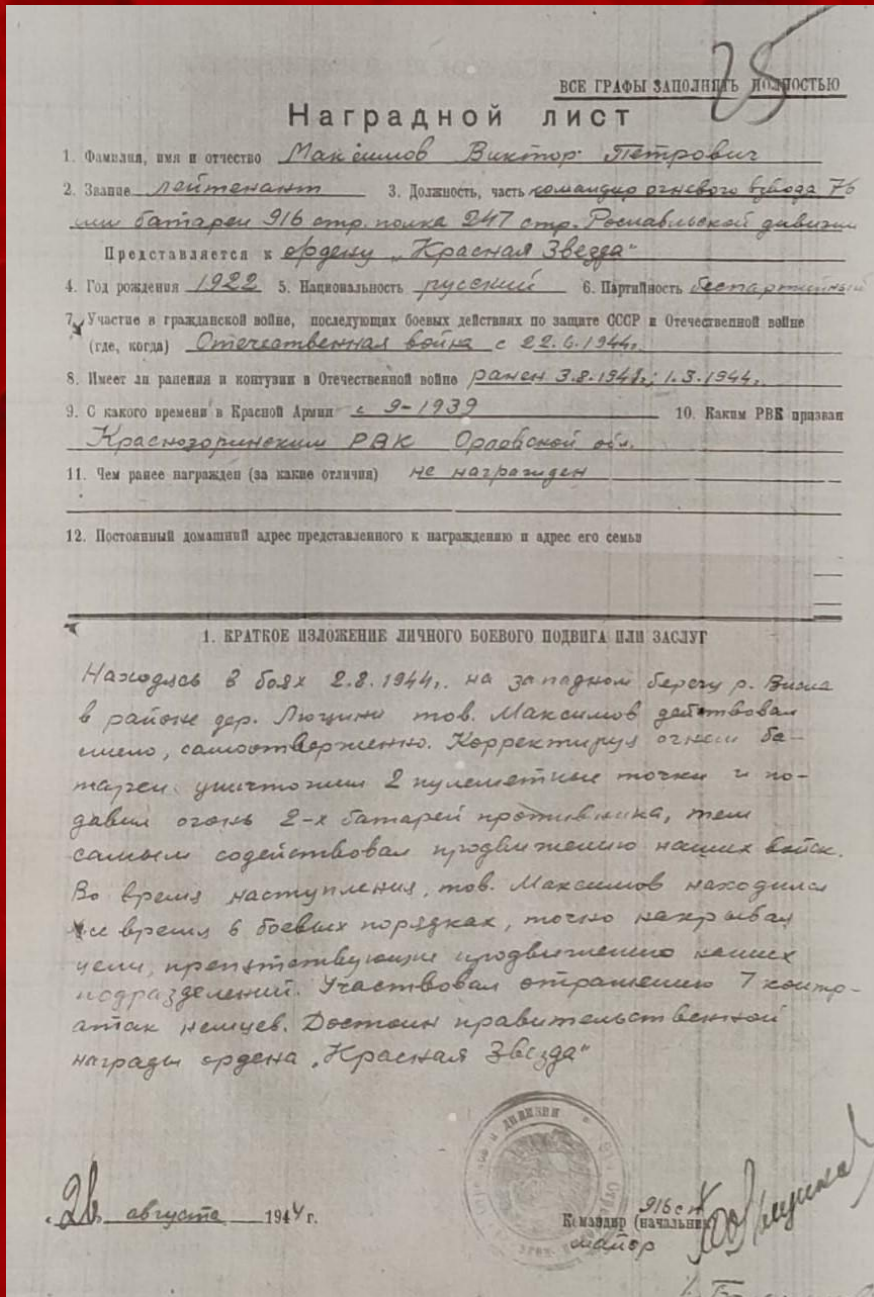 25
ВСЕ ГРАФЫ ЗАПОЛНЯТЬ ПОЛНОСТЬЮ
Наградной лист
1. Фамилия, имя и отчество Максимов Виктор Петрович
2. Звание лейтенант 3. Должность, часть командир огневого взвода 76
мм батареи 916 стр. полка 247 стр. Рославльской дивизии
Представляется к ордену „Красная Звезда“
4. Год рождения 1922 5. Национальность русский 6. Партийность беспартийный
7. Участие в гражданской войне, последующих боевых действиях по защите СССР и Отечественной войне
(где, когда) Отечественная война с 22.6.1944г.
8. Имеет ли ранения и контузии в Отечественной войне ранен 3.8.1943г.; 1.3.1944г.
9. С какого времени в Красной Армии с 9-1939 10. Каким РВК призван
Краснозоринским РВК Орловской обл.
11. Чем ранее награжден (за какие отличия) не награжден
12. Постоянный домашний адрес представленного к награждению и адрес его семьи
1. КРАТКОЕ ИЗЛОЖЕНИЕ ЛИЧНОГО БОЕВОГО ПОДВИГА ИЛИ ЗАСЛУГ
Находясь в боях 2.8.1944г. на западном берегу р. Висла
в районе дер. Люцими тов. Максимов действовал
смело, самоотверженно. Корректируя огнем ба-
тареи уничтожил 2 пулеметные точки и по-
давил огонь 2-х батарей противника, тем
самым содействовал продвижению наших войск.
Во время наступления, тов. Максимов находился
все время в боевых порядках, точно накрывал
цели, препятствующие продвижению наших
подразделений. Участвовал отражению 7 контр-
атак немцев. Достоин правительственной
награды ордена „Красная Звезда“
26 августа 1944 г.
916 сп
Командир (начальник)
майор